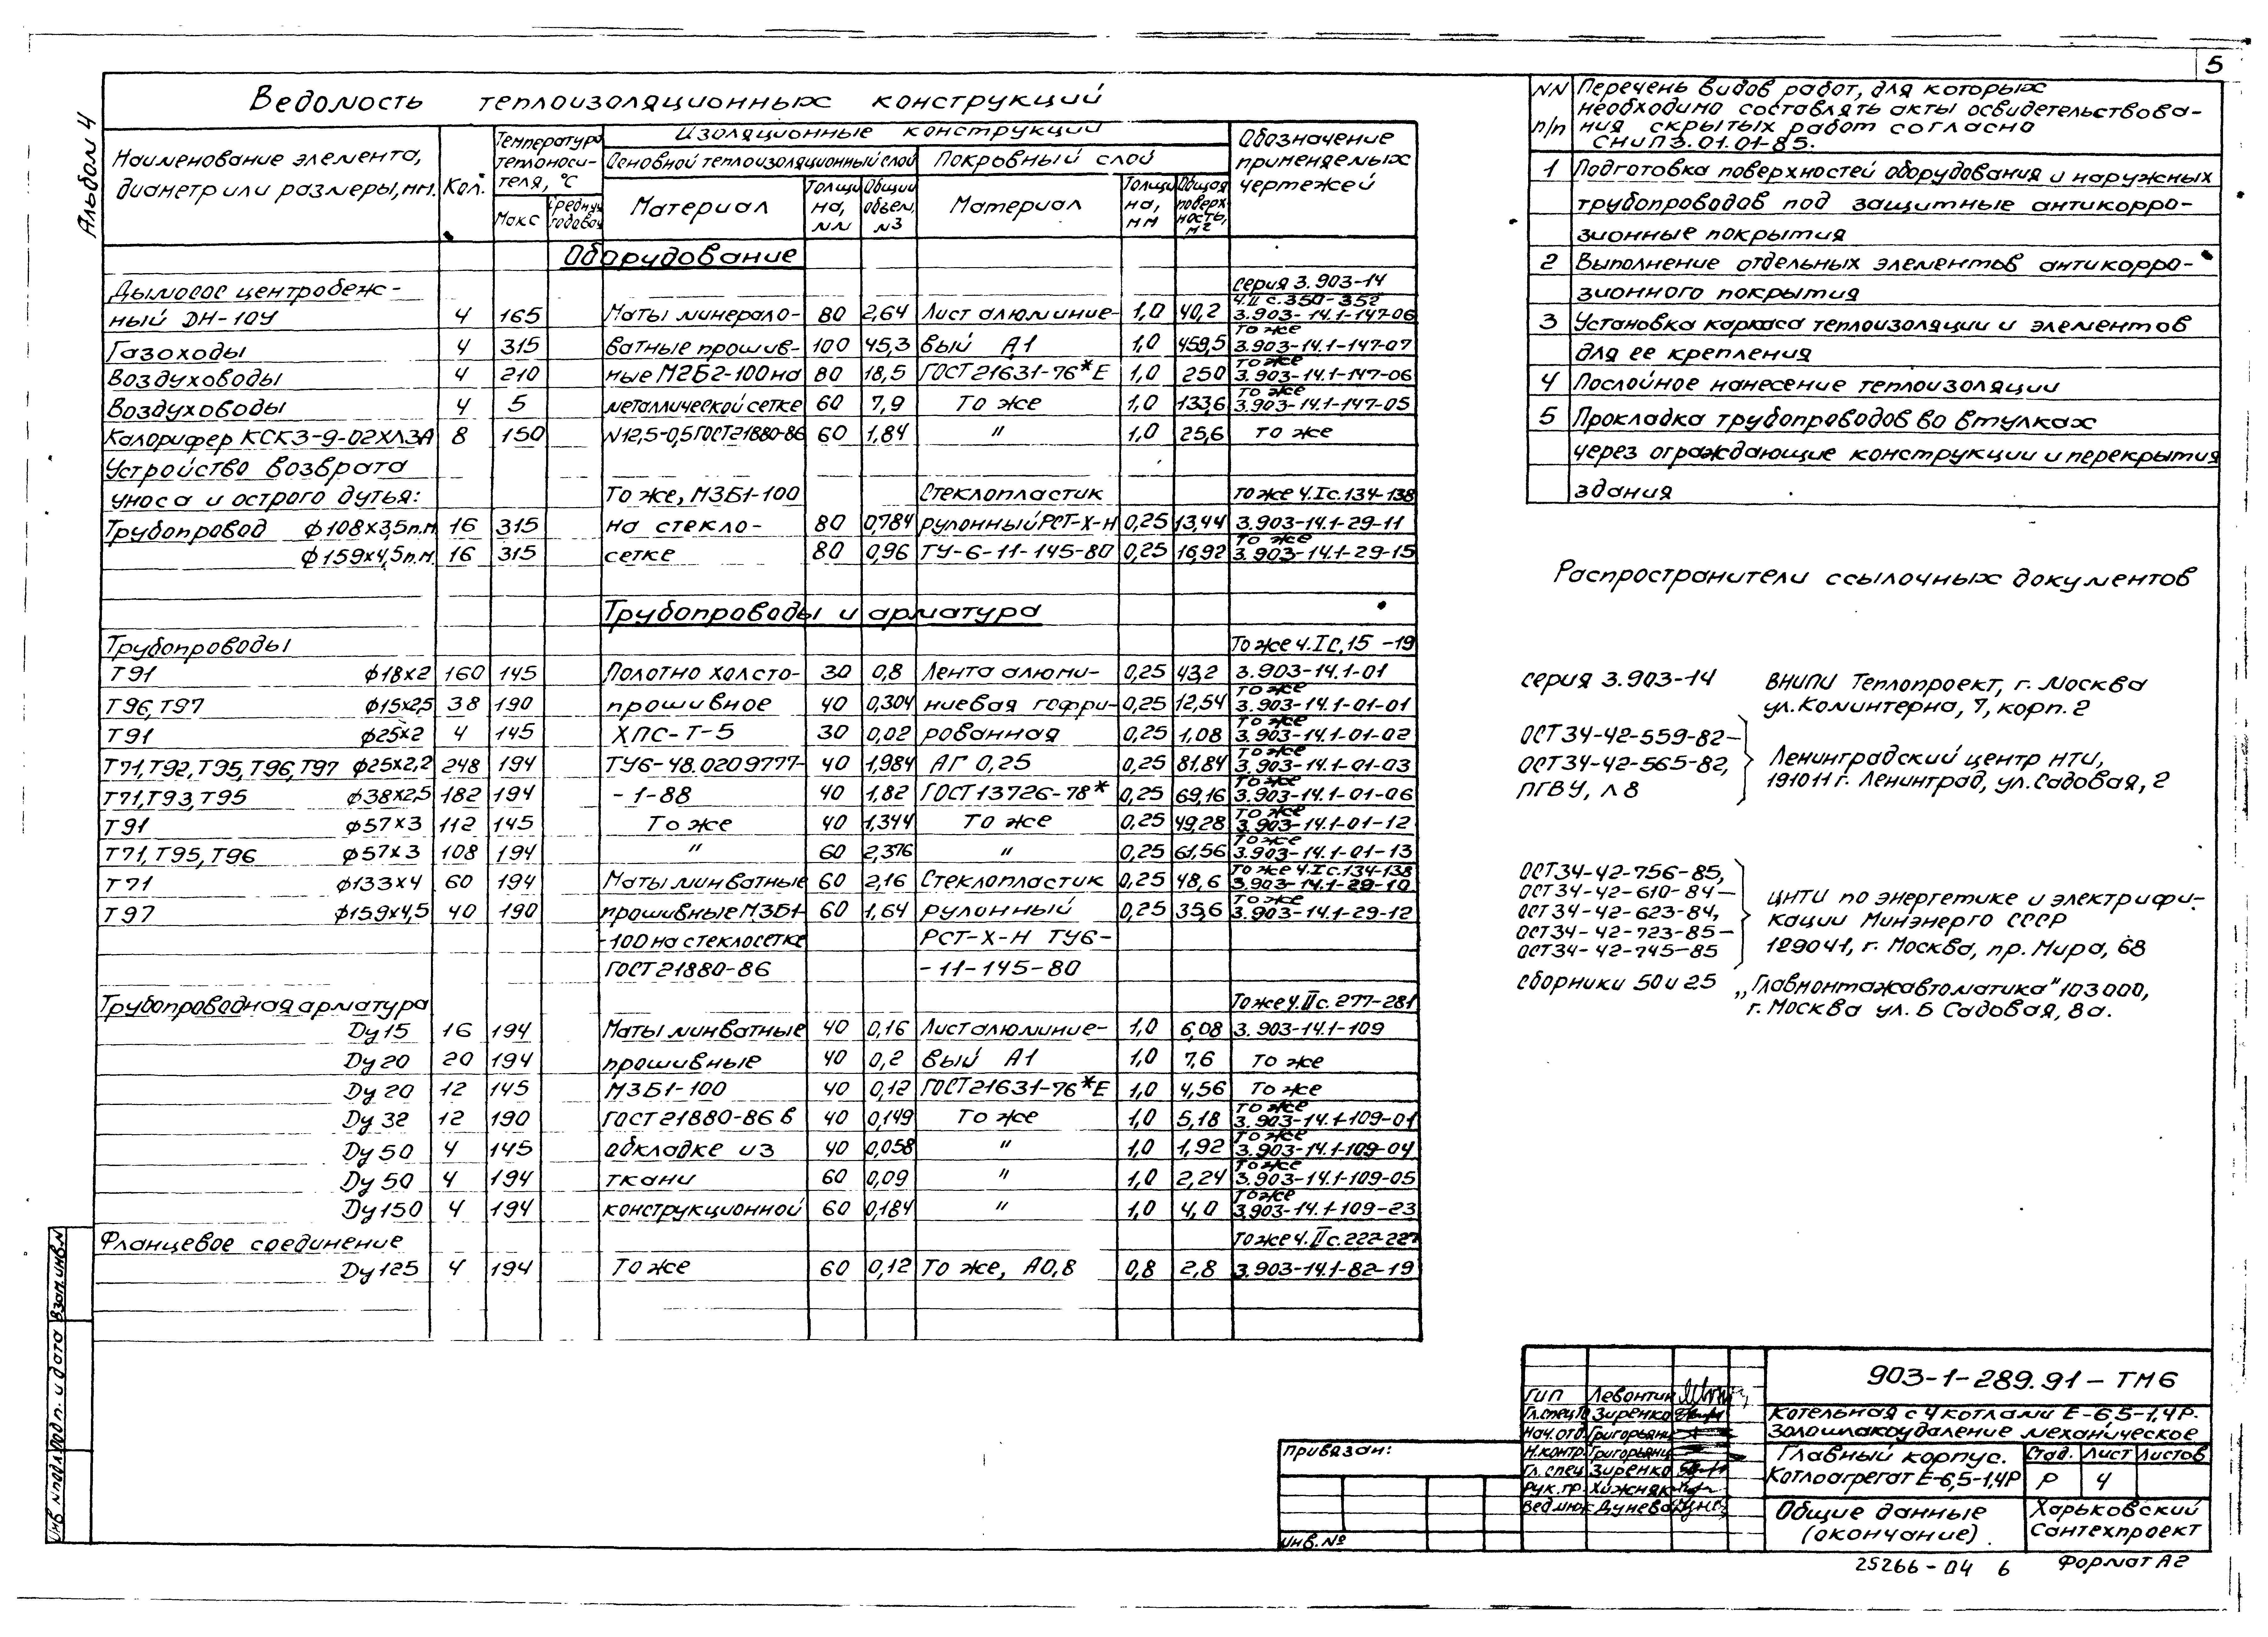 5
Альбом 4
Ведомость теплоизоляционных конструкций
Наименование элемента, диаметр или размеры, мм. | Кол. | Температура теплоносителя, °С | Изоляционные конструкции | Обозначение применяемых чертежей
Макс | Среднегодовая | Основной теплоизоляционный слой | Покровный слой
Материал | Толщина, мм | Общий объем, м3 | Материал | Толщина, мм | Общая поверхность, м2
Оборудование
Дымосос центробеж- | серия 3.903-14
ч.II с.350-352
ный ДН-10У | 4 | 165 | Маты минерало- | 80 | 2,64 | Лист алюминие- | 1,0 | 40,2 | 3.903-14.1-147-06
Газоходы | 4 | 315 | ватные прошив- | 100 | 45,3 | вый А1 | 1,0 | 459,5 | То же 3.903-14.1-147-07
Воздуховоды | 4 | 210 | ные М2Б2-100 на | 80 | 18,5 | ГОСТ 21631-76*Е | 1,0 | 250 | То же 3.903-14.1-147-06
Воздуховоды | 4 | 5 | металлической сетке | 60 | 7,9 | То же | 1,0 | 133,6 | То же 3.903-14.1-147-05
Калорифер КСК3-9-02ХЛ3А | 8 | 150 | N12,5-0,5 ГОСТ 21880-86 | 60 | 1,84 | " | 1,0 | 25,6 | То же
Устройство возврата
уноса и острого дутья: | То же, М3Б1-100 | Стеклопластик | То же ч.I с.134-138
Трубопровод ф108х3,5п.м. | 16 | 315 | на стекло- | 80 | 0,784 | рулонный РСТ-Х-Н | 0,25 | 13,44 | 3.903-14.1-29-11
ф159х4,5п.м. | 16 | 315 | сетке | 80 | 0,96 | ТУ-6-11-145-80 | 0,25 | 16,92 | То же 3.903-14.1-29-15
Трубопроводы и арматура
Трубопроводы | То же ч.I с.15-19
Т91 ф18х2 | 160 | 145 | Полотно холсто- | 30 | 0,8 | Лента алюми- | 0,25 | 43,2 | 3.903-14.1-01
Т96, Т97 ф15х2,5 | 38 | 190 | прошивное | 40 | 0,304 | ниевая гофри- | 0,25 | 12,54 | То же 3.903-14.1-01-01
Т91 ф25х2 | 4 | 145 | ХПС-Т-5 | 30 | 0,02 | рованная | 0,25 | 1,08 | То же 3.903-14.1-01-02
Т71, Т92, Т95, Т96, Т97 ф25х2,2 | 248 | 194 | ТУ6-48.0209777- | 40 | 1,984 | АГ 0,25 | 0,25 | 81,84 | То же 3.903-14.1-01-03
Т71, Т93, Т95 ф38х2,5 | 182 | 194 | -1-88 | 40 | 1,82 | ГОСТ 13726-78* | 0,25 | 69,16 | То же 3.903-14.1-01-06
Т91 ф57х3 | 112 | 145 | То же | 40 | 1,344 | То же | 0,25 | 49,28 | То же 3.903-14.1-01-12
Т71, Т95, Т96 ф57х3 | 108 | 194 | " | 60 | 2,376 | " | 0,25 | 61,56 | То же 3.903-14.1-01-13
Т71 ф133х4 | 60 | 194 | Маты минватные | 60 | 2,16 | Стеклопластик | 0,25 | 48,6 | То же ч.I с.134-138 3.903-14.1-29-10
Т97 ф159х4,5 | 40 | 190 | прошивные М3Б1- | 60 | 1,64 | рулонный | 0,25 | 35,6 | То же 3.903-14.1-29-12
-100 на стеклосетке | РСТ-Х-Н ТУ6-
ГОСТ 21880-86 | -11-145-80
Трубопроводная арматура | То же ч.II с.277-281
Ду 15 | 16 | 194 | Маты минватные | 40 | 0,16 | Лист алюминие- | 1,0 | 6,08 | 3.903-14.1-109
Ду 20 | 20 | 194 | прошивные | 40 | 0,2 | вый А1 | 1,0 | 7,6 | То же
Ду 20 | 12 | 145 | М3Б1-100 | 40 | 0,12 | ГОСТ 21631-76*Е | 1,0 | 4,56 | То же
Ду 32 | 12 | 190 | ГОСТ 21880-86 в | 40 | 0,149 | То же | 1,0 | 5,18 | То же 3.903-14.1-109-01
Ду 50 | 4 | 145 | обкладке из | 40 | 0,058 | " | 1,0 | 1,92 | То же 3.903-14.1-109-04
Ду 50 | 4 | 194 | ткани | 60 | 0,09 | " | 1,0 | 2,24 | То же 3.903-14.1-109-05
Ду 150 | 4 | 194 | конструкционной | 60 | 0,184 | " | 1,0 | 4,0 | То же 3.903-14.1-109-23
Фланцевое соединение | То же ч.II с.222-227
Ду 125 | 4 | 194 | То же | 60 | 0,12 | То же, А0,8 | 0,8 | 2,8 | 3.903-14.1-82-19
NN п/п | Перечень видов работ, для которых
необходимо составлять акты освидетельствова-
ния скрытых работ согласно
СНиП 3.01.01-85.
1 | Подготовка поверхностей оборудования и наружных
трубопроводов под защитные антикорро-
зионные покрытия
2 | Выполнение отдельных элементов антикорро-
зионного покрытия
3 | Установка каркаса теплоизоляции и элементов
для ее крепления
4 | Послойное нанесение теплоизоляции
5 | Прокладка трубопроводов во втулках
через ограждающие конструкции и перекрытия
здания
Распространители ссылочных документов
серия 3.903-14 ВНИПИ Теплопроект, г. Москва
ул. Коминтерна, 7, корп. 2
ОСТ 34-42-559-82-
ОСТ 34-42-565-82, Ленинградский центр НТИ,
ПГВУ, Л8 191011 г. Ленинград, ул. Садовая, 2
ОСТ 34-42-756-85,
ОСТ 34-42-610-84- ЦНТИ по энергетике и электрифи-
ОСТ 34-42-623-84, кации Минэнерго СССР
ОСТ 34-42-723-85- 129041, г. Москва, пр. Мира, 68
ОСТ 34-42-745-85
Сборники 50 и 25 „Главмонтажавтоматика" 103000,
г. Москва ул. Б Садовая, 8а.
903-1-289.91-ТМ6
Котельная с 4 котлами Е-6,5-1,4Р.
Золошлакоудаление механическое
Главный корпус.
Котлоагрегат Е-6,5-1,4Р
Стад. Лист Листов
Р 4
Общие данные
(окончание)
Харьковский
Сантехпроект
ГИП Левонтин
Гл.спец Зиренко
Нач.отд. Григорьянц
Н.контр. Григорьянц
Гл.спец Зиренко
Рук.гр. Хижняк
Вед.инж. Дунева
Привязан:
Инв.№
Инв. N подл. Подп. и дата Взам.инв.N
25266-04 6 Формат А2